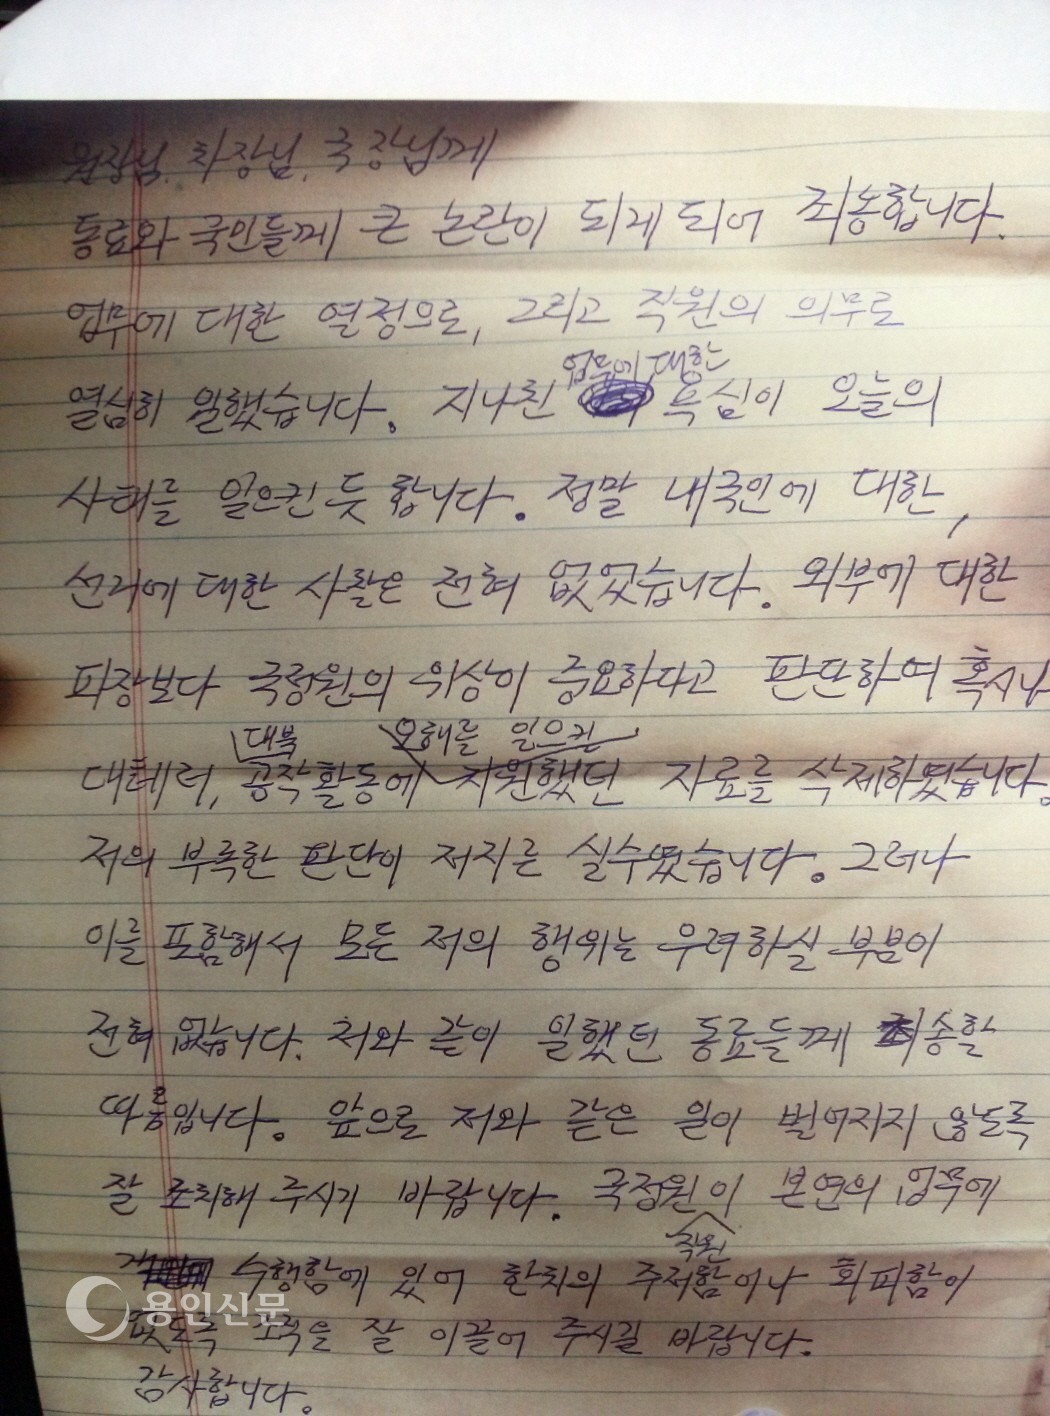 원장님, 차장님, 국장님께
동료와 국민들께 큰 논란이 되게 되어 죄송합니다.
업무에 대한 열정으로, 그리고 직원의 의무로
업무에 대한
열심히 일했습니다. 지나친 욕심이 오늘의
사태를 일으킨 듯 합니다. 정말 내국인에 대한,
선거에 대한 사찰은 전혀 없었습니다. 외부에 대한
파장보다 국정원의 위상이 중요하다고 판단하여 혹시나
대북 오해를 일으킬
대테러, 공작활동에 지원했던 자료를 삭제하였습니다.
저의 부족한 판단이 저지른 실수였습니다. 그러나
이를 포함해서 모든 저의 행위는 우려하실 부분이
전혀 없습니다. 저와 같이 일했던 동료들께 죄송할
따름입니다. 앞으로 저와 같은 일이 벌어지지 않도록
잘 조치해 주시기 바랍니다. 국정원이 본연의 업무에
직원
수행함에 있어 한치의 주저함이나 회피함이
없도록 조직을 잘 이끌어 주시길 바랍니다.
감사합니다.
용인신문